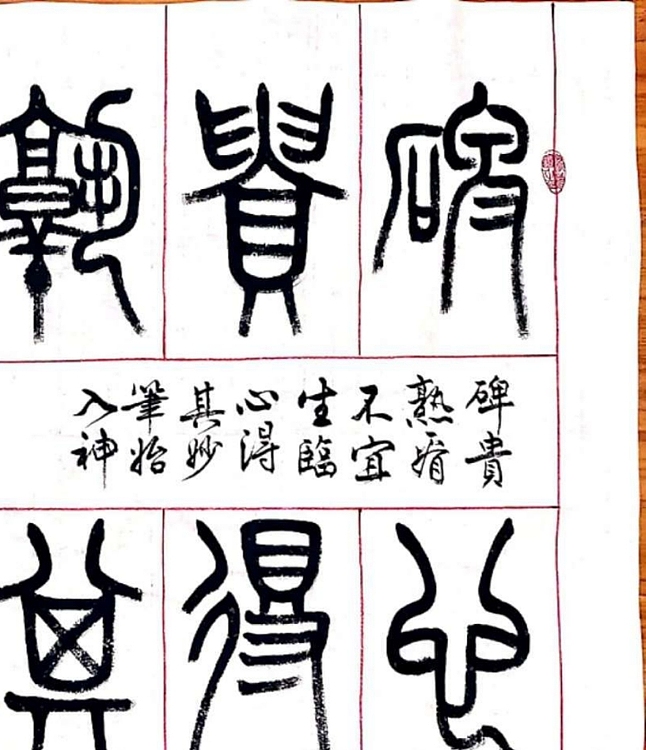 碑
貴
熟
碑貴
熟看
不宜
生臨
心得
其妙
筆始
入神
心
得
其